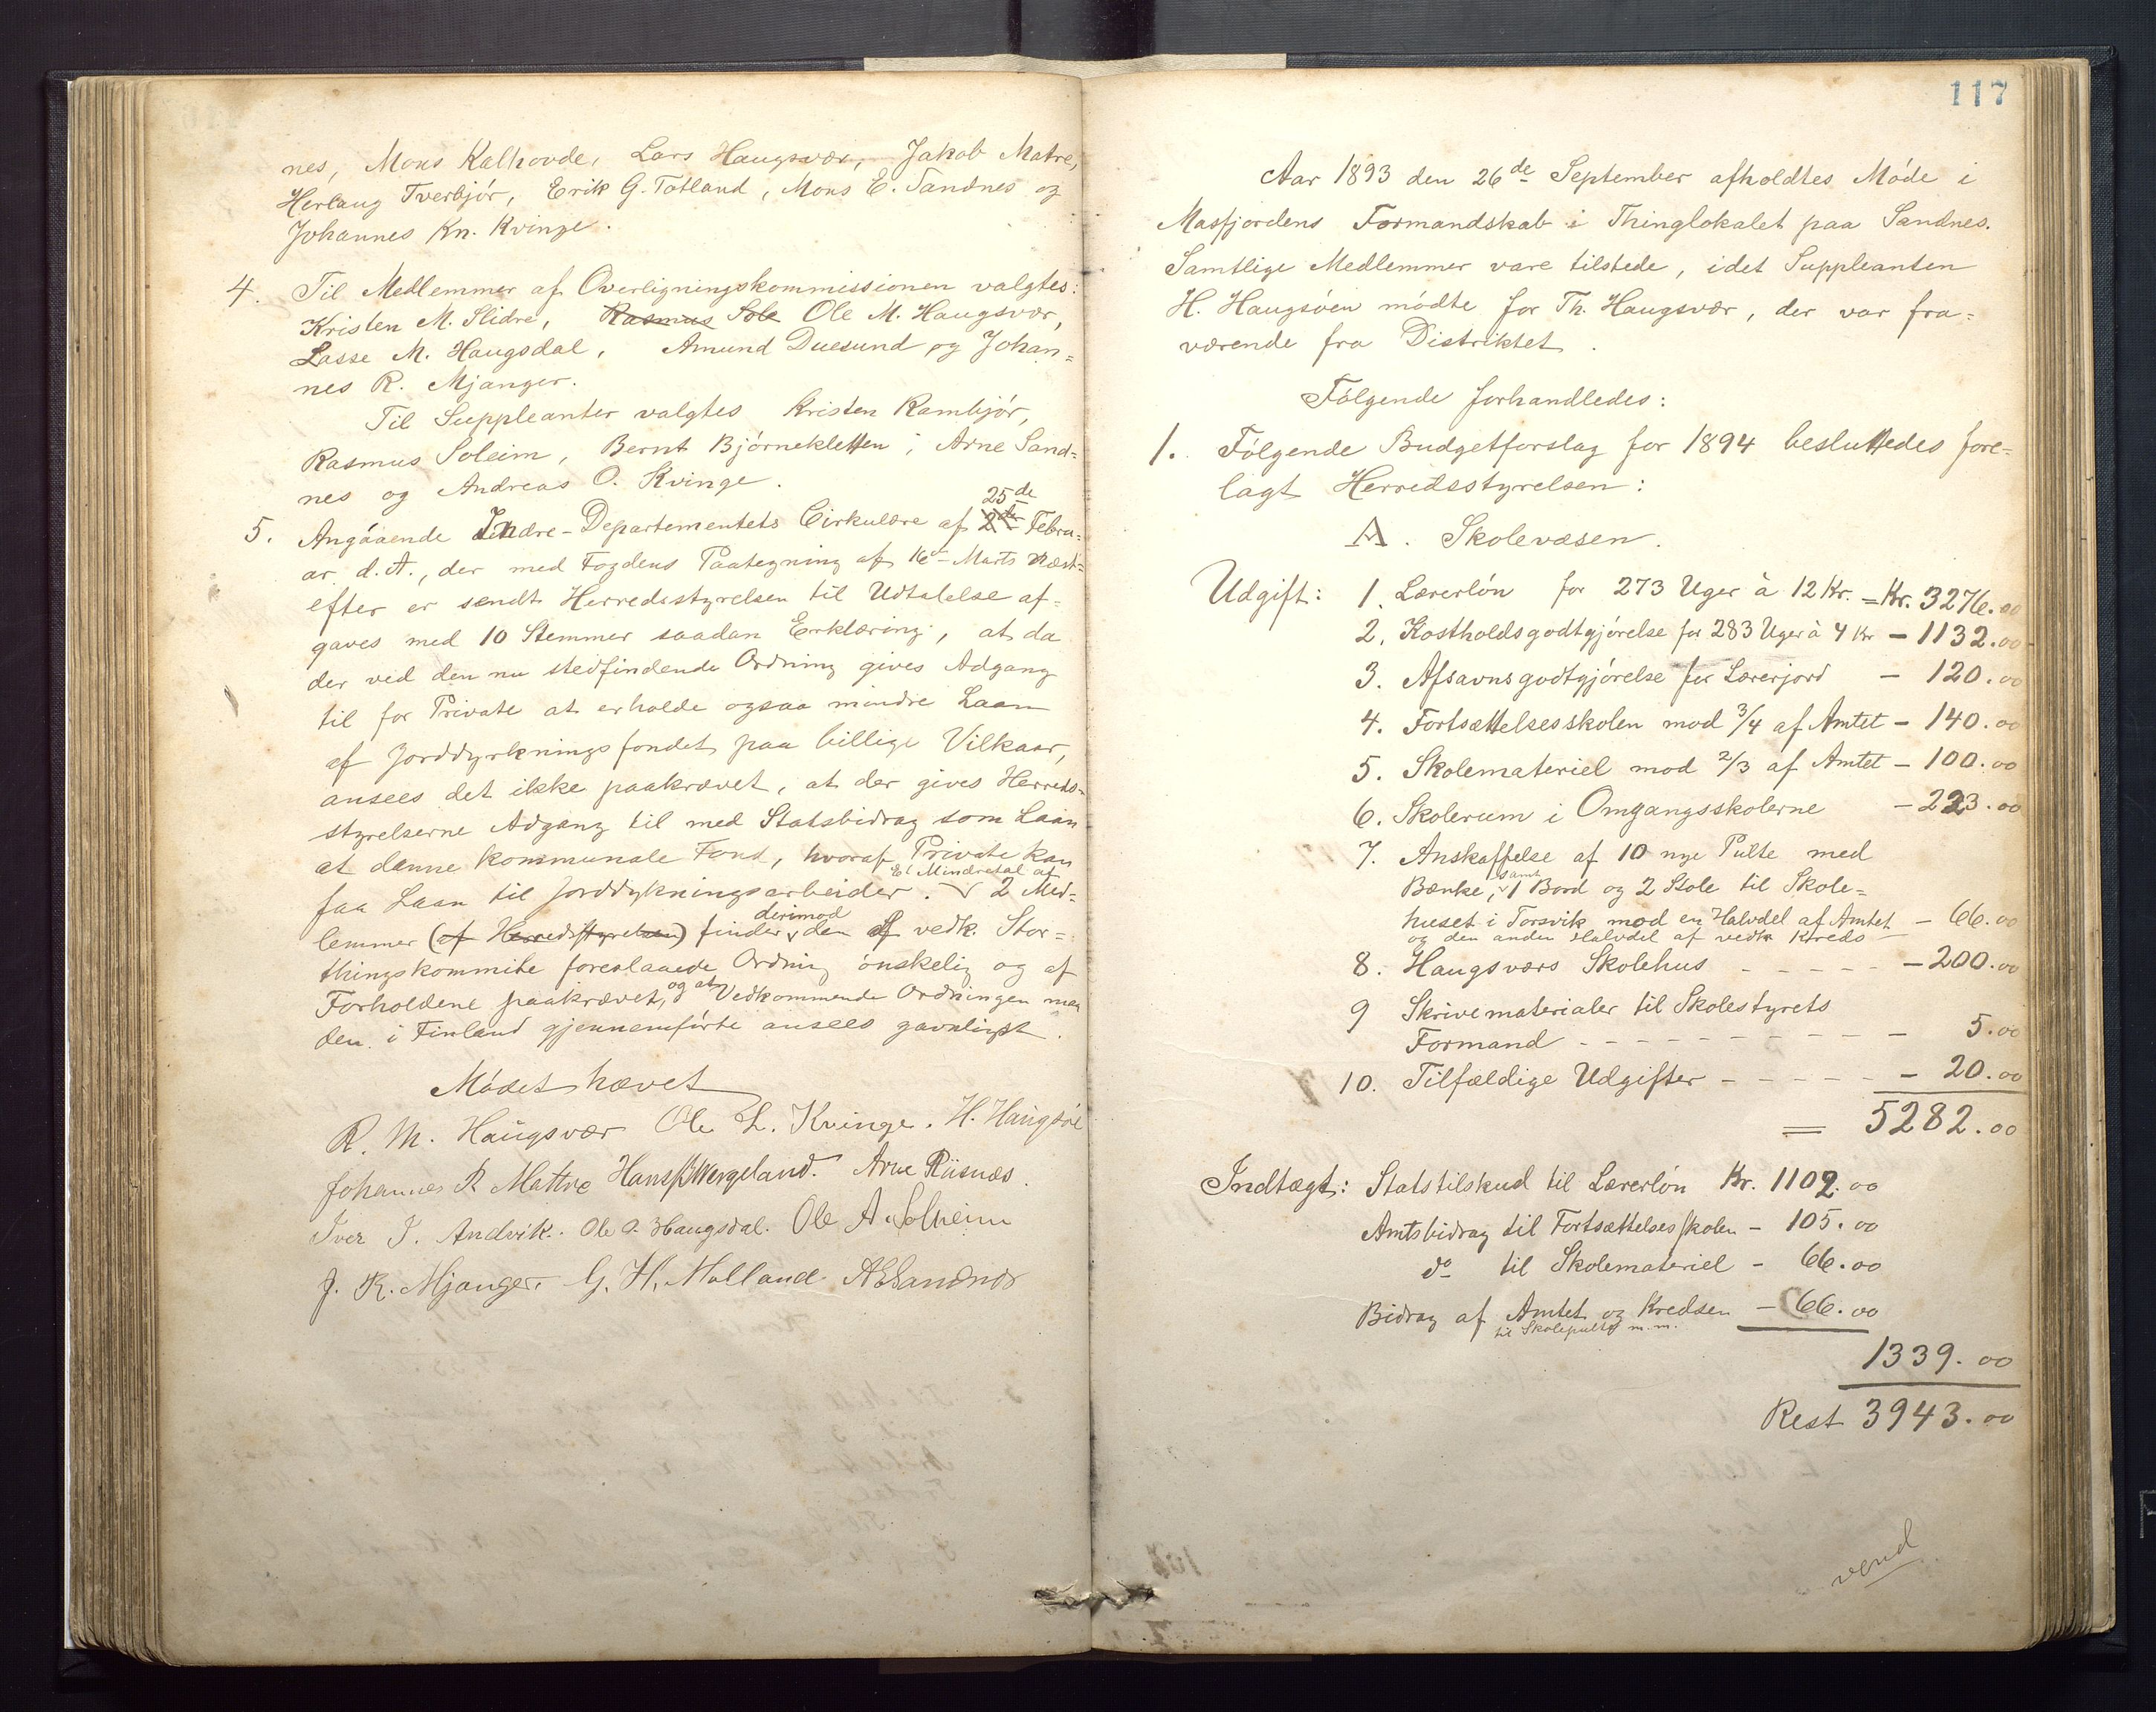 nes, Mons Kalhovde, Lars Haugsvær, Jakob Matre,
Herlaug Tverbjör, Erik G. Totland, Mons E. Sandnes og
Johannes Kn. Kvinge.
4. Til Medlemmer af Overligningskommissionen valgtes:
Kristen M. Slidre, Rasmus Sole Ole M. Haugsvær,
Lasse M. Haugsdal, Amund Duesund og Johan=
nes R. Mjanger.
Til Suppleanter valgtes Kristen Rambjör,
Rasmus Soleim, Bernt Björnekletten, Arne Sand=
nes og Andreas O. Kvinge.
25de
5. Angaaende Indre-Departementets Cirkulære af 2den Febru=
ar d. A., der med Fogdens Paategning af 16de Marts næst=
efter er sendt Herredsstyrelsen til Udtalelse af=
gaves med 10 Stemmer saadan Erklæring, at da
der ved den nu stedfindende Ordning gives Adgang
til for Private at erholde ogsaa mindre Laan
af Jorddyrkningsfondet paa billige Vilkaar,
ansees det ikke paakrævet, at der gives Herreds=
styrelserne Adgang til med Statsbidrag som Laan
at danne kommunale Fond, hvoraf Private kan
Et Mindretal af
faa Laan til Jorddykningsarbeider. 2 Med=
derimod
lemmer (af Herredsstyrelsen) finder den af vedk. Stor=
thingskommite foreslaaede Ordning önskelig og af
og at
Forholdene paakrævet, Vedkommende Ordningen maa
den i Finland gjennemförte ansees gavnligst.
Mödet hævet
R. M. Haugsvær Ole L. Kvinge. H. Haugsöe
Johannes R Mattre Hans Wergeland. Arne Riisnæs.
Iver I. Andvik. Ole O. Haugsdal. Ole A. Solheim
J. R. Mjanger. G. H. Molland AESandnes
117
Aar 1893 den 26de September afholdtes Möde i
Masfjordens Formandskab i Thinglokalet paa Sandnes.
Samtlige Medlemmer vare tilstede, idet Suppleanten
H. Haugsöen mödte for Th. Haugsvær, der var fra=
værende fra Distriktet.
Fölgende forhandledes:
1. Fölgende Budgetforslag for 1894 besluttedes fore=
lagt Herredsstyrelsen:
A. Skolevæsen.
Udgift: 1. Lærerlön for 273 Uger à 12 Kr. = Kr. 3276.00
2. Kostholdsgodtgjörelse for 283 Uger à 4 Kr - 1132.00
3. Afsavnsgodtgjörelse for Lærerjord - 120.00
4. Fortsættelsesskolen mod 3/4 af Amtet - 140.00
5. Skolemateriel mod 2/3 af Amtet - 100.00
6. Skolerum i Omgangsskolerne - 223.00
7. Anskaffelse af 10 nye Pulte med
samt
Bænke, 1 Bord og 2 Stole til Skole=
huset i Torsvik mod en Halvdel af Amtet - 66.00
og den anden Halvdel af vedk Kreds
8. Haugsværs Skolehus - - - - - 200.00
9 Skrivematerialer til Skolestyrets
Formand - - - - - - - - - - 5.00
10. Tilfældige Udgifter - - - - - - 20.00
= 5282.00
Indtægt: Statstilskud til Lærerlön Kr. 1102.00
Amtsbidrag til Fortsættelsesskolen - 105.00
do til Skolemateriel - 66.00
Bidrag af Amtet og Kredsen - 66.00
til Skolepulte m.m.
1339.00
Rest 3943.00
vend